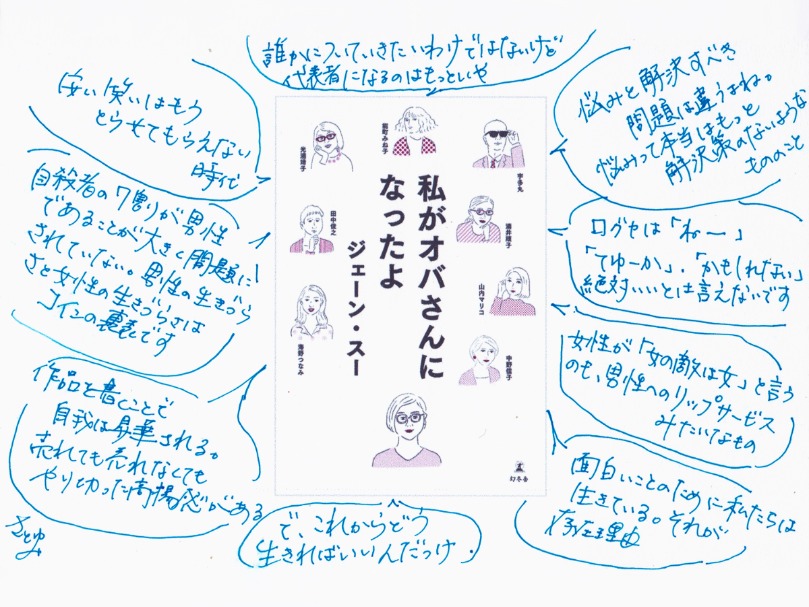 誰かについていきたいわけではないけど
代表者になるのはもっといや
安い笑いはもう
とらせてもらえない
時代
自殺者の7割りが男性
であることが大きく問題に
されていない。男性の生きづら
さと女性の生きづらさは
コインの裏表です
作品を書くことで
自我は昇華される。
売れても売れなくても
やり切った高揚感がある
さとゆみ
悩みと解決すべき
問題は違うよね。
悩みって本当はもっと
解決策のないような
もののこと
口グセは「ねー」
「てゆーか」、「かもしれない」
絶対いいとは言えないです
女性が「女の敵は女」と言う
のも、男性へのリップサービス
みたいなもの
面白いことのために私たちは
生きている。それが
存在理由
で、これからどう
生きればいいんだっけ.
私がオバさんに
なったよ
ジェーン・スー
光浦靖子
能町みね子
宇多丸
田中俊之
酒井順子
山内マリコ
海野つなみ
中野信子
幻冬舎